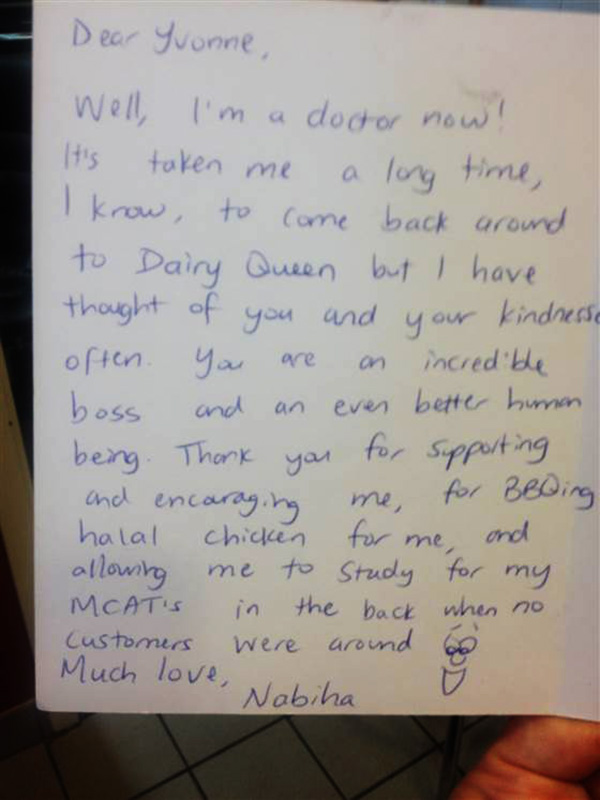 Dear Yvonne,
Well, I'm a doctor now!
It's taken me a long time,
I know, to come back around
to Dairy Queen but I have
thought of you and your kindnesse
often. You are an incredible
boss and an even better human
being. Thank you for supporting
and encouraging me, for BBQing
halal chicken for me, and
allowing me to study for my
MCAT's in the back when no
customers were around
Much love,
Nabiha